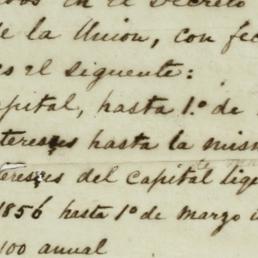 en el Decreto
de la Union, con fec
es el siguente:
apital, hasta 1.º de
tereses hasta la mism
tereses del Capital liq
1856 hasta 1º de Marzo
100 anual